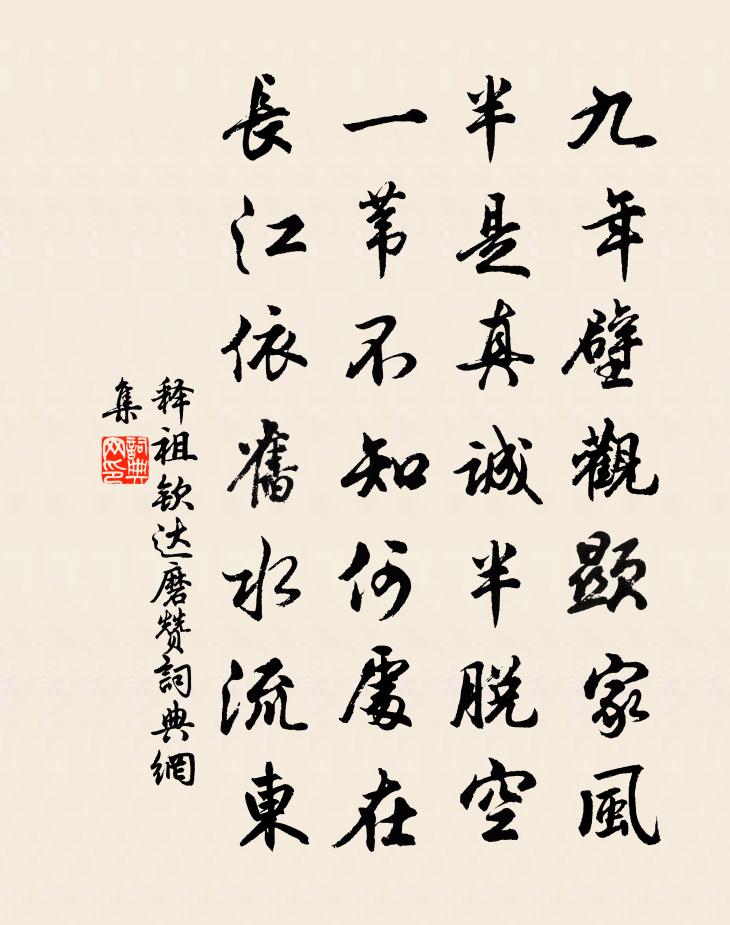 九年壁觀顯家風
半是真誠半脱空
一苇不知何處在
長江依舊水流東
释祖钦达磨赞詞典網
集
詞典
网印